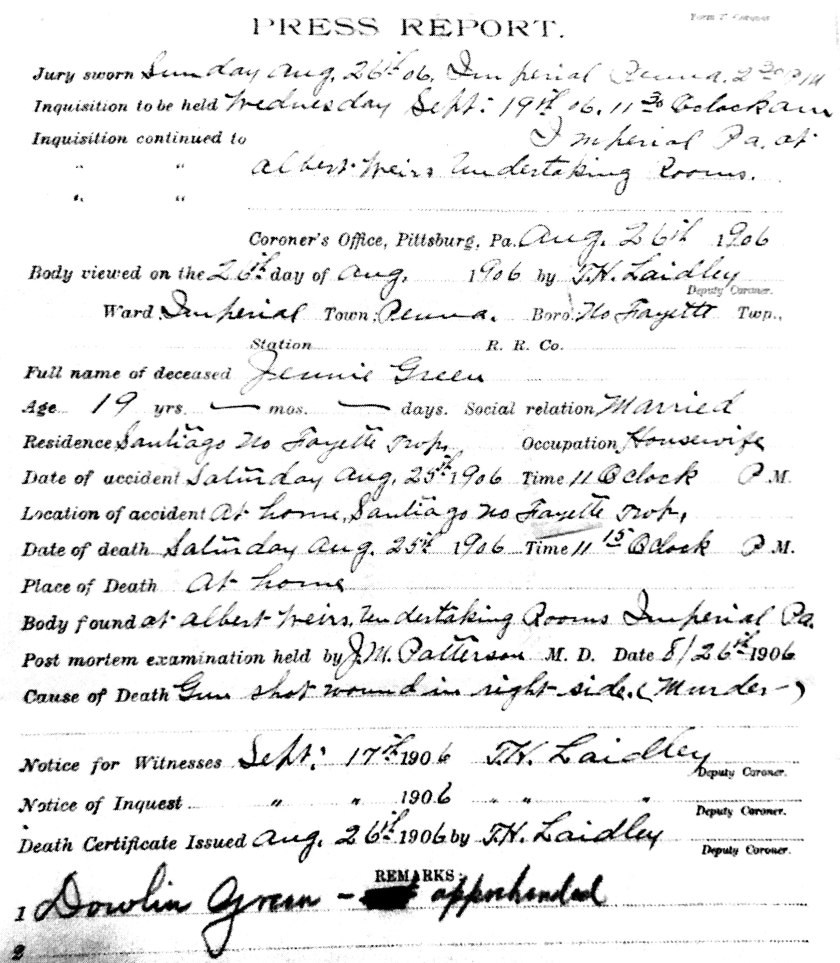 Form Coroner
PRESS REPORT.
Jury sworn Sunday Aug. 26th 06. Imperial Penna. 2 30 P M
Inquisition to be held Wednesday Sept: 19th 06. 11 30 Oclock am
Inquisition continued to Imperial Pa. at
" " Albert Weirs Undertaking Rooms.
" "
Coroner's Office, Pittsburg, Pa. Aug. 26th 1906
Body viewed on the 26th day of Aug. 1906 by T.H. Laidley
Deputy Coroner.
Ward, Imperial Town, Penna. Boro, No Fayette Twp.,
Station R. R. Co.
Full name of deceased Jennie Green
Age 19 yrs. — mos. — days. Social relation, Married
Residence, Santiago No Fayette Twp, Occupation, Housewife
Date of accident Saturday Aug. 25th 1906 Time 11 Oclock P.M.
Location of accident At home, Santiago No Fayette Twp,
Date of death Saturday Aug. 25th 1906 Time 11 15 Oclock P.M.
Place of Death At home
Body found at Albert Weirs, Undertaking Rooms Imperial Pa.
Post mortem examination held by J.M. Patterson M. D. Date 8/26th 1906
Cause of Death Gun shot wound in right side. (Murder-)
Notice for Witnesses Sept: 17th 1906 T.H. Laidley
Deputy Coroner.
Notice of Inquest " " 1906 " " "
Deputy Coroner.
Death Certificate Issued Aug. 26th 1906 by T.H. Laidley
Deputy Coroner.
REMARKS:
1 Dowlin Green - apprehended
2